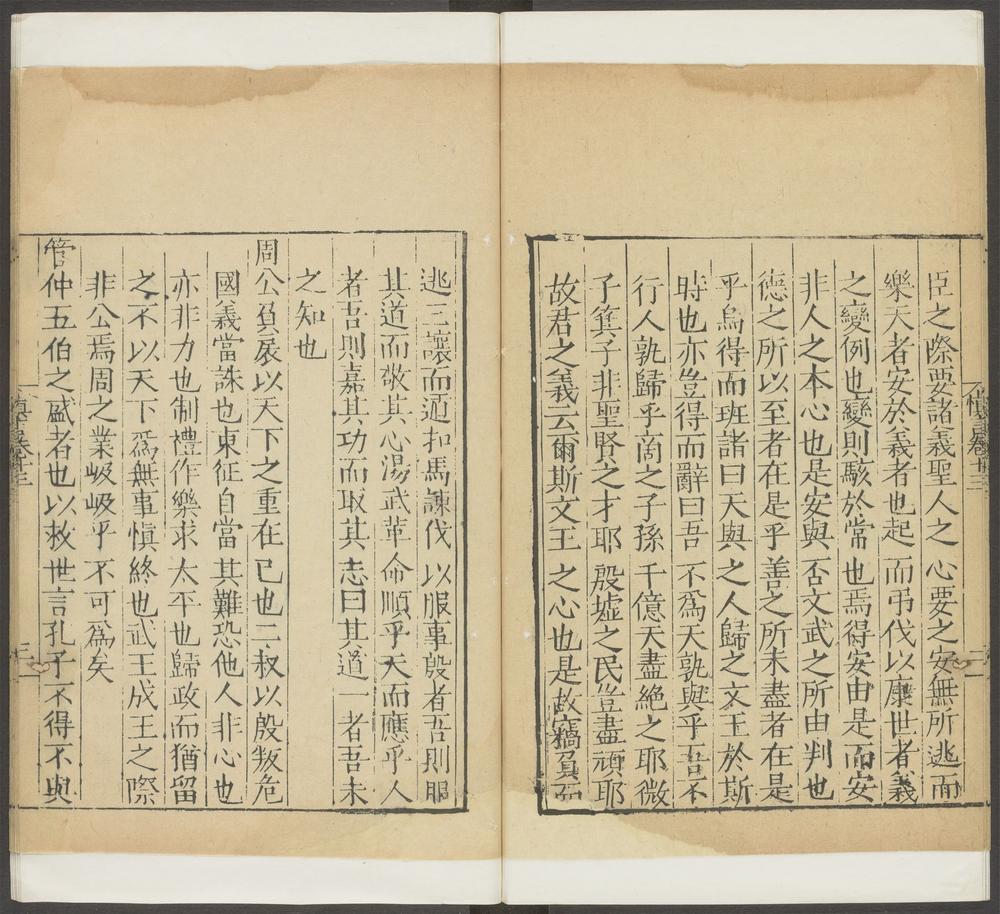 臣之際要諸義聖人之心要之安無所逃而
樂天者安於義者也起而弔伐以康世者義
之變例也變則駭於常也焉得安由是而安
非人之本心也是安與否文武之所由判也
德之所以至者在是乎善之所未盡者在是
乎烏得而班諸曰天與之人歸之文王於斯
時也亦豈得而辭曰吾不爲天孰與乎吾不
行人孰歸乎商之子孫千億天盡絶之耶微
子箕子非聖賢之才耶殷墟之民豈盡頑耶
故君之義云爾斯文王之心也是故竊負而
逃三讓而逎扣馬諫伐以服事殷者吾則服
其道而敬其心湯武革命順乎天而應乎人
者吾則嘉其功而取其志曰其道一者吾未
之知也
周公負扆以天下之重在已也二叔以殷叛危
國義當誅也東征自當其難恐他人非心也
亦非力也制禮作樂求太平也歸政而猶留
之不以天下爲無事慎終也武王成王之際
非公焉周之業岋岋乎不可爲矣
管仲五伯之盛者也以救世言孔子不得不與